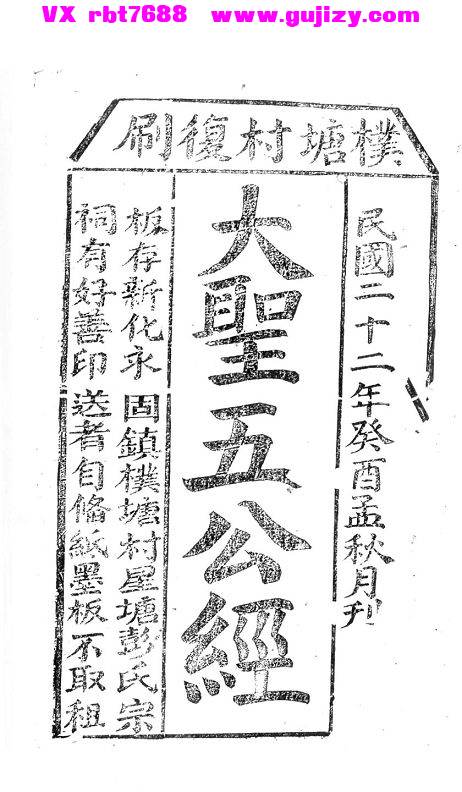 VX rbt7688 www.gujizy.com
樸塘村復刷
民國二十二年癸酉孟秋月刊
大聖五公經
板存新化永固鎮樸塘村星塘彭氏宗
祠有好善印送者自俻紙墨板不取租